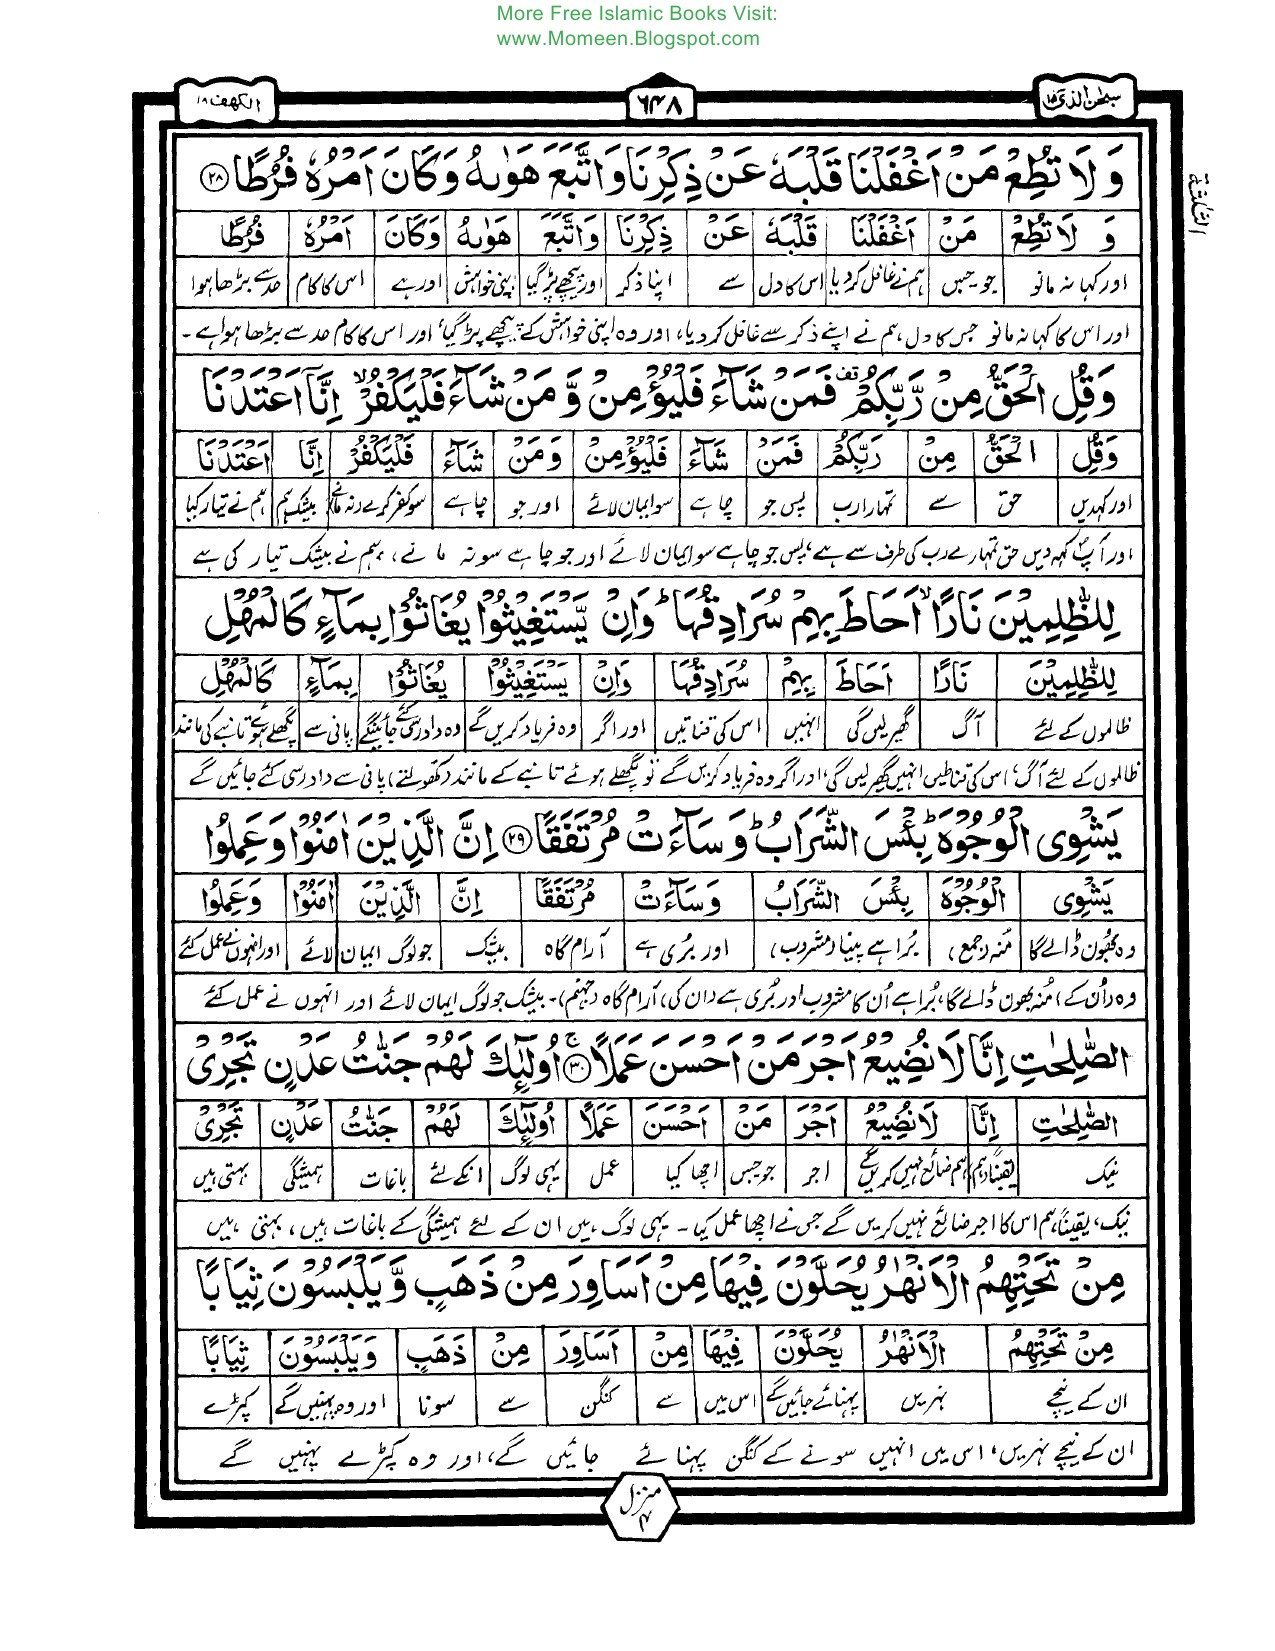 More Free Islamic Books Visit:
www.Momeen.Blogspot.com
سبحٰن الذی ۱۵
۶۴۸
الکھف ۱۸
وَلَا تُطِعْ مَنْ اَغْفَلْنَا قَلْبَهٗ عَنْ ذِكْرِنَا وَاتَّبَعَ هَوٰىهُ وَكَانَ اَمْرُهٗ فُرُطًا ۲۸
وَ لَا تُطِعْ مَنْ اَغْفَلْنَا قَلْبَهٗ عَنْ ذِكْرِنَا وَاتَّبَعَ هَوٰىهُ وَكَانَ اَمْرُهٗ فُرُطًا
اور کہا نہ مانو جو جس ہم نے غافل کردیا اس کا دل سے اپنا ذکر اور پیچھے پڑ گیا اپنی خواہش اور ہے اس کا کام حد سے بڑھا ہوا
اور اس کا کہا نہ مانو جس کا دل ہم نے اپنے ذکر سے غافل کر دیا، اور وہ اپنی خواہش کے پیچھے پڑ گیا، اور اس کا کام حد سے بڑھا ہوا ہے۔
وَقُلِ الْحَقُّ مِنْ رَّبِّكُمْ قف فَمَنْ شَآءَ فَلْيُؤْمِنْ وَّمَنْ شَآءَ فَلْيَكْفُرْ ۙ اِنَّآ اَعْتَدْنَا
وَقُلِ الْحَقُّ مِنْ رَبِّكُمْ فَمَنْ شَآءَ فَلْيُؤْمِنْ وَمَنْ شَآءَ فَلْيَكْفُرْ اِنَّا اَعْتَدْنَا
اور کہدیں حق سے تمہارا رب پس جو چاہے سو ایمان لائے اور جو چاہے سو کفر کرے (نہ مانے) بیشک ہم ہم نے تیار کیا
اور آپؐ کہہ دیں حق تمہارے رب کی طرف سے ہے، پس جو چاہے سو ایمان لائے اور جو چاہے سو نہ مانے، ہم نے بیشک تیار کی ہے
لِلظّٰلِمِيْنَ نَارًا ۙ اَحَاطَ بِهِمْ سُرَادِقُهَا ؕ وَاِنْ يَّسْتَغِيْثُوْا يُغَاثُوْا بِمَآءٍ كَالْمُهْلِ
لِلظّٰلِمِيْنَ نَارًا اَحَاطَ بِهِمْ سُرَادِقُهَا وَاِنْ يَسْتَغِيْثُوْا يُغَاثُوْا بِمَآءٍ كَالْمُهْلِ
ظالموں کے لئے آگ گھیر لیں گی انہیں اس کی قناتیں اور اگر وہ فریاد کریں گے وہ داد رسی کئے جائینگے پانی سے پگھلے ہوئے تانبے کی مانند
ظالموں کے لئے آگ، اس کی قناطیں انہیں گھیر لیں گی، اور اگر وہ فریاد کریں گے تو پگھلے ہوئے تانبے کے مانند (کھولتے) پانی سے داد رسی کئے جائیں گے
يَشْوِى الْوُجُوْهَ ؕ بِئْسَ الشَّرَابُ ؕ وَسَآءَتْ مُرْتَفَقًا ۲۹ اِنَّ الَّذِيْنَ اٰمَنُوْا وَعَمِلُوا
يَشْوِى الْوُجُوْهَ بِئْسَ الشَّرَابُ وَسَآءَتْ مُرْتَفَقًا اِنَّ الَّذِيْنَ اٰمَنُوْا وَعَمِلُوا
وہ بھون ڈالے گا منہ (جمع) بُرا ہے پینا (مشروب) اور بُری ہے آرام گاہ بیشک جو لوگ ایمان لائے اور انہوں نے عمل کئے
وہ (اُن کے) مُنہ بھون ڈالے گا، بُرا ہے اُن کا مشروب اور بُری ہے (ان کی) آرام گاہ (جہنم)۔ بیشک جو لوگ ایمان لائے اور انہوں نے عمل کئے
الصّٰلِحٰتِ اِنَّا لَا نُضِيْعُ اَجْرَ مَنْ اَحْسَنَ عَمَلًا ۚ ۳۰ اُولٰٓئِكَ لَهُمْ جَنّٰتُ عَدْنٍ تَجْرِيْ
الصّٰلِحٰتِ اِنَّا لَا نُضِيْعُ اَجْرَ مَنْ اَحْسَنَ عَمَلًا اُولٰٓئِكَ لَهُمْ جَنّٰتُ عَدْنٍ تَجْرِيْ
نیک یقیناً ہم ہم ضائع نہیں کریں گے اجر جو جس اچھا کیا عمل یہی لوگ انکے لئے باغات ہمیشگی بہتی ہیں
نیک، یقیناً ہم اس کا اجر ضائع نہیں کریں گے جس نے اچھا عمل کیا۔ یہی لوگ ہیں ان کے لئے ہمیشگی کے باغات ہیں، بہتی ہیں
مِنْ تَحْتِهِمُ الْاَنْهٰرُ يُحَلَّوْنَ فِيْهَا مِنْ اَسَاوِرَ مِنْ ذَهَبٍ وَّيَلْبَسُوْنَ ثِيَابًا
مِنْ تَحْتِهِمُ الْاَنْهٰرُ يُحَلَّوْنَ فِيْهَا مِنْ اَسَاوِرَ مِنْ ذَهَبٍ وَيَلْبَسُوْنَ ثِيَابًا
ان کے نیچے نہریں پہنائے جائیں گے اس میں سے کنگن سے سونا اور وہ پہنیں گے کپڑے
ان کے نیچے نہریں، اس میں انہیں سونے کے کنگن پہنائے جائیں گے، اور وہ کپڑے پہنیں گے
منزل ۴